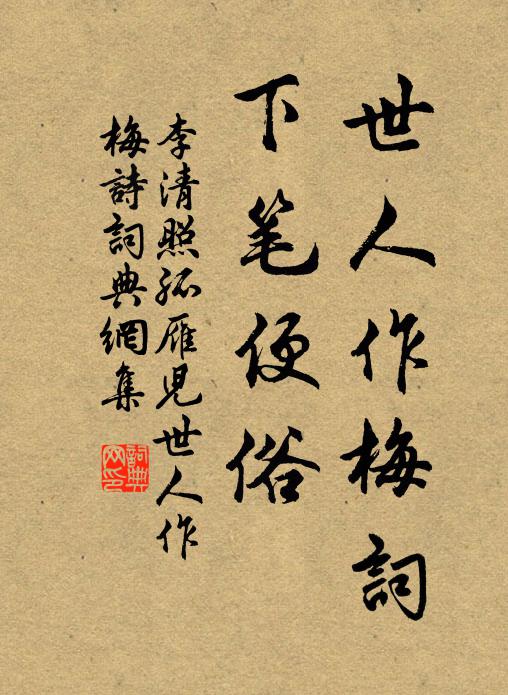 世人作梅詞
下笔便俗
李清照孤雁兒世人作
梅詩詞典網集
詞典网印